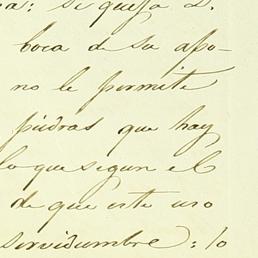 na: si queja D.
boca de su apo-
no le permite
piedras que hay
lo que segun el
de que este uso
servidumbre: lo